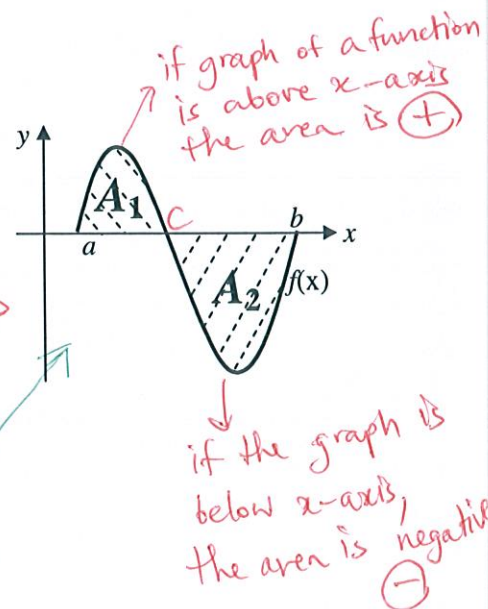 if graph of a function
is above x-axis
the area is +
y
A1
C
a
b
x
A2
f(x)
if the graph is
below x-axis,
the area is negative
−